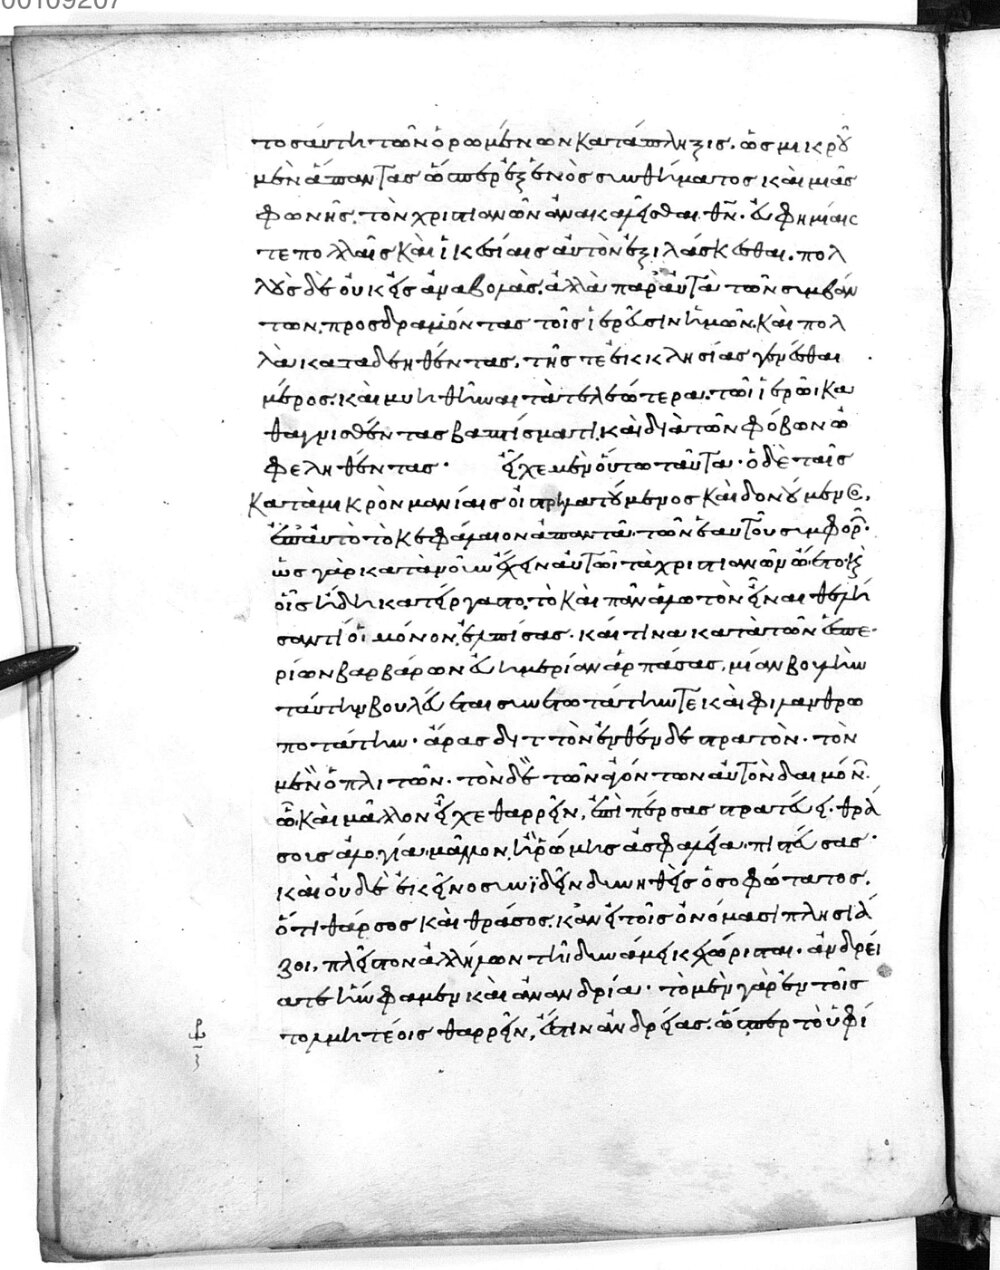 00109207
τοσαύτη τῶν ὁρωμένων κατάπληξις. ὡς μικροῦ
μὲν ἅπαντας ὥσπερ ἐξ ἑνὸς συνθήματος καὶ μιᾶς
φωνῆς, τὸν χριστιανῶν ἀνακαλεῖσθαι θν̅. εὐφημίαις
τε πολλαῖς καὶ ἱκεσίαις αὐτὸν ἐξιλάσκεσθαι. πολ
λοὺς δὲ οὐκ εἰς ἀναβολὰς, ἀλλὰ παρ' αὐτὰ τῶν συμβάν
των, προσδραμόντας τοῖς ἱερεῦσιν ἡμῶν. καὶ πολ
λὰ καταδεηθέντας, τῆς τε ἐκκλησίας γενέσθαι
μέρος. καὶ μυηθῆναι τὰ τελεώτερα. τῶι ἱερῶι κα
θαγνισθέντας βαπτίσματι. καὶ διὰ τῶν φόβων ὠ
φεληθέντας. εἶχε μὲν οὕτω ταῦτα. ὁ δὲ ταῖς
κατὰ μικρὸν μανίαις οἰστρηλατούμενος καὶ δονούμενος,
ἐπ' αὐτὸ τὸ κεφάλαιον ἀπαντᾶ τῶν ἑαυτοῦ συμφορῶν.
ὡς γὰρ κατὰ νοῦν ἔχειν αὐτῶι τὰ χριστιανῶν ὤετο ἐξ
οἷς ἤδη κατείργαστο. τὸ καὶ πᾶν ἁλωτὸν εἶναι θελή
σαντί οἱ μόνον, ἐλπίσας. καί τινα κατὰ τῶν ἑσπε
ρίων βαρβάρων εὐημερίαν ἁρπάσας, μίαν βουλὴν
ταύτην βουλεύεται συνετωτάτην τε καὶ φιλανθρω
ποτάτην. ἄρας διττὸν ἐνθένδε στρατὸν. τὸν
μὲν ὁπλιτῶν. τὸν δὲ τῶν ἀγόντων αὐτὸν δαιμόνων.
ὧ καὶ μᾶλλον εἶχε θαρρεῖν, ἐπὶ πέρσας στρατεύει. θρά
σους ἀλογία μᾶλλον ἢ ῥώμης ἀσφαλεία πιστεύσας.
καὶ οὐδὲ ἐκεῖνο συνϊδεῖν δυνηθεὶς ὁ σοφώτατος.
ὅτι θάρσος καὶ θράσος. κἂν τοῖς ὀνόμασι πλησιά
ζοι, πλεῖστον ἀλλήλων τῆι δυνάμει κεχώρισται. ἀνδρεί
α τε ἥν φαμεν καὶ ἀνανδρία. τὸ μὲν γὰρ ἐν τοῖς
τολμητέοις θαρρεῖν, ἐστὶν ἀνδρείας. ὥσπερ τὸ ὑφι